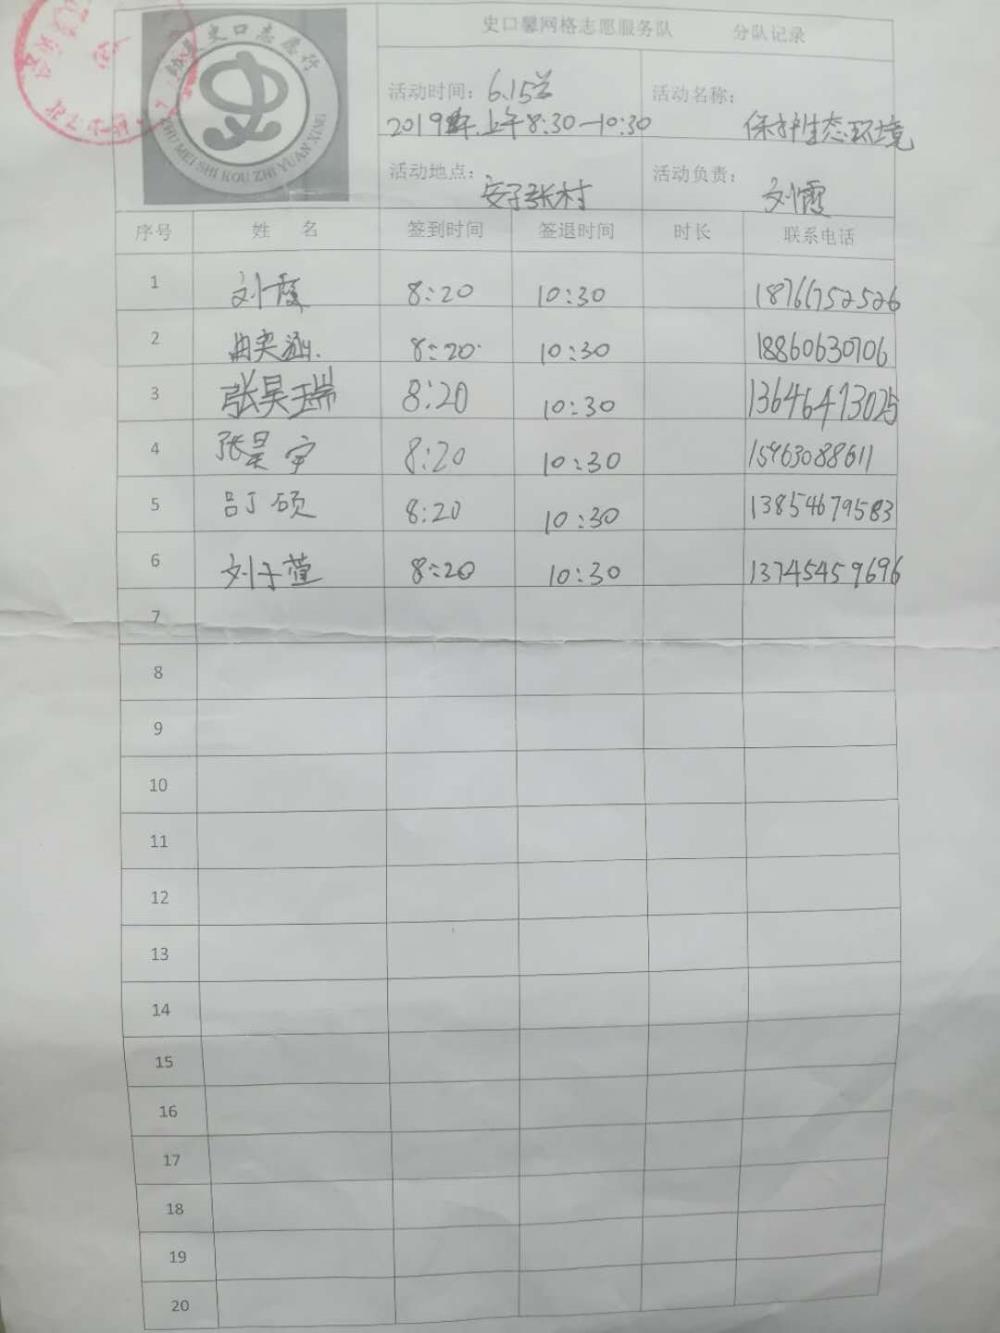 史口馨网格志愿服务队 分队记录
SHU MEI SHI KOU ZHI YUAN XING
活动时间: 6.15
2019年上午8:30—10:30
活动名称:
保护生态环境
活动地点: 安子张村
活动负责: 刘霞
序号 姓 名 签到时间 签退时间 时长 联系电话
1 刘霞 8:20 10:30 18766752526
2 8:20 10:30 18860630706
3 张昊瑞 8:20 10:30 13646473025
4 张昊宇 8:20 10:30 15963088611
5 硕 8:20 10:30 13854679583
6 刘子萱 8:20 10:30 13745459696
7
8
9
10
11
12
13
14
15
16
17
18
19
20